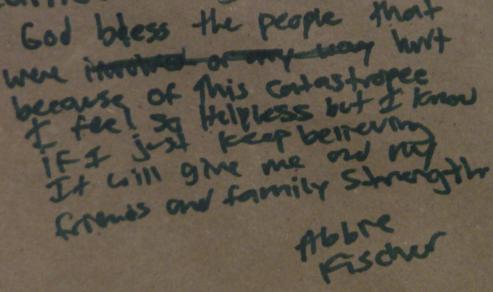 God bless the people that
were involved or any way hurt
because of this catastropee
I feel so helpless but I know
if I just keep believing
It will give me and my
friends and family Strength
Abbie
Fischer